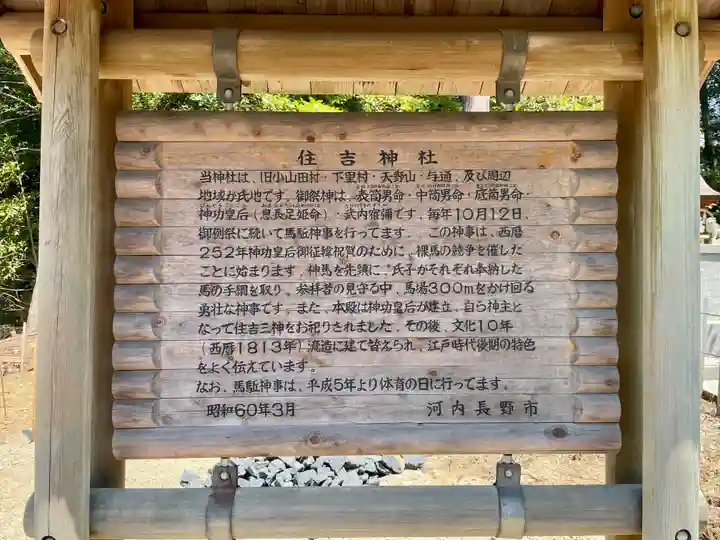 住吉神社
当神社は、旧小山田村・下里村・天野山・与通、及び周辺
地域が氏地です。御祭神は、表筒男命・中筒男命・底筒男命・
神功皇后(息長足姫命)・武内宿彌です。毎年10月12日、
御例祭に続いて馬駈神事を行ってます。 この神事は、西暦
252年神功皇后御征韓祝賀のために、裸馬の競争を催した
ことに始まります。神馬を先頭に、氏子がそれぞれ奉納した
馬の手綱を取り、参拝者の見守る中、馬場300mをかけ回る
勇壮な神事です。また、本殿は神功皇后が建立、自ら神主と
なって住吉三神をお祀りされました。その後、文化10年
(西暦1813年)流造に建て替えられ、江戸時代後期の特色
をよく伝えています。
なお、馬駈神事は、平成5年より体育の日に行ってます。
昭和60年3月 河内長野市